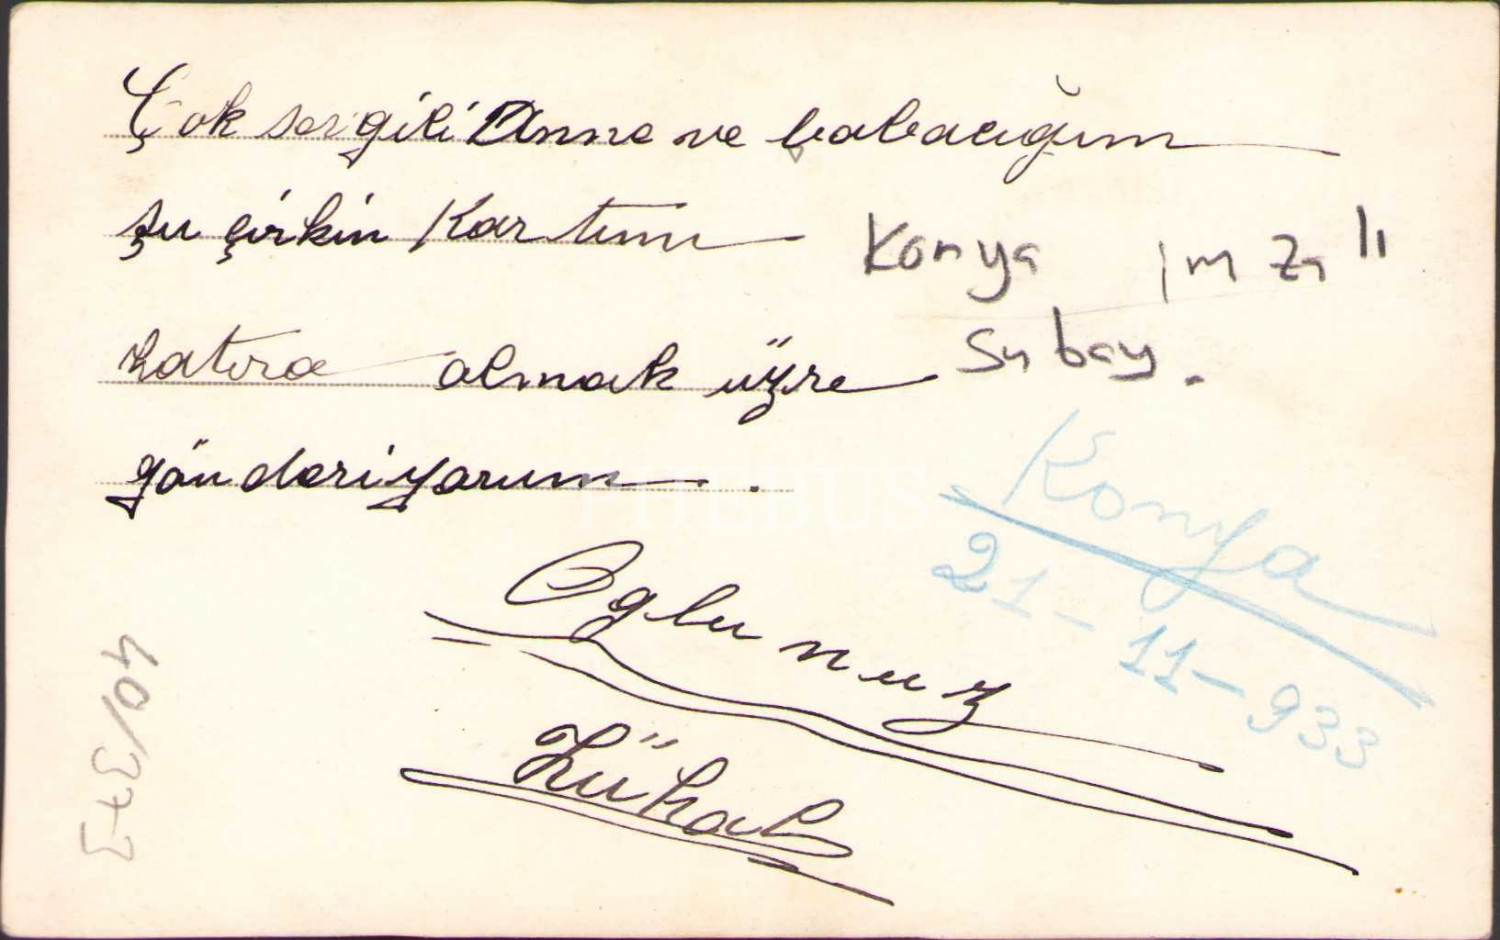 Çok sevgili Anne ve babacığım
şu çirkin Kartımı
hatıra olmak üzre
gönderiyorum.
Oglunuz
Konya İmzalı
Subay.
Konya
21-11-933
40/3+3
PHEBUS